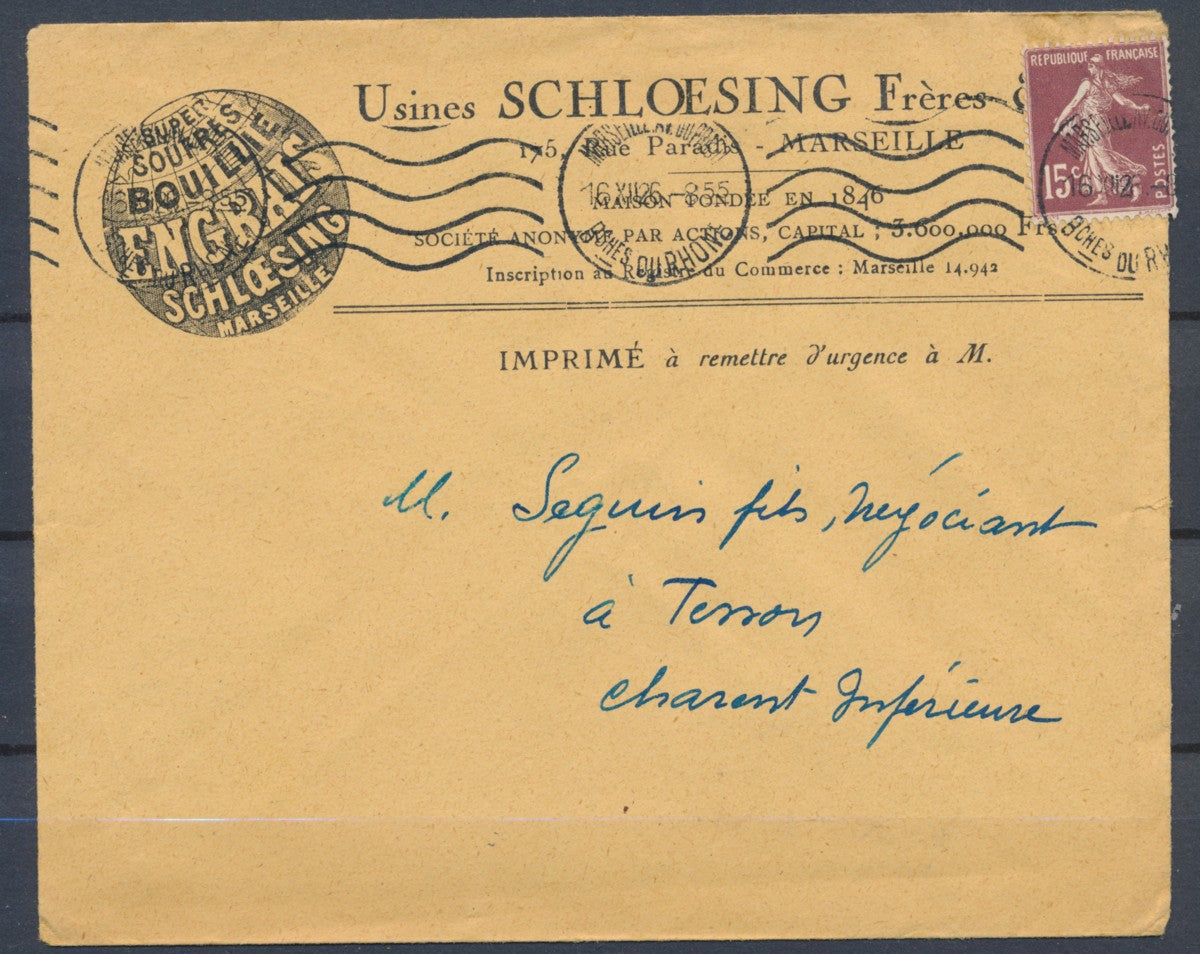 SUPER
SOUFRES
BOUILLIE
ENGRAIS
SCHLŒSING
MARSEILLE
Usines SCHLŒSING Frères &
175, Rue Paradis - MARSEILLE
MAISON FONDÉE EN 1846
SOCIÉTÉ ANONYME PAR ACTIONS, CAPITAL : 3.600.000 Frs
Inscription au Registre du Commerce : Marseille 14.942
REPUBLIQUE FRANÇAISE
15c
POSTES
16 XII 26 - 55
BCHES DU RHONE
16 XII 2
BCHES DU RH
IMPRIMÉ à remettre d'urgence à M.
M. Seguin fils, négociant
à Terson
Charent Inférieure